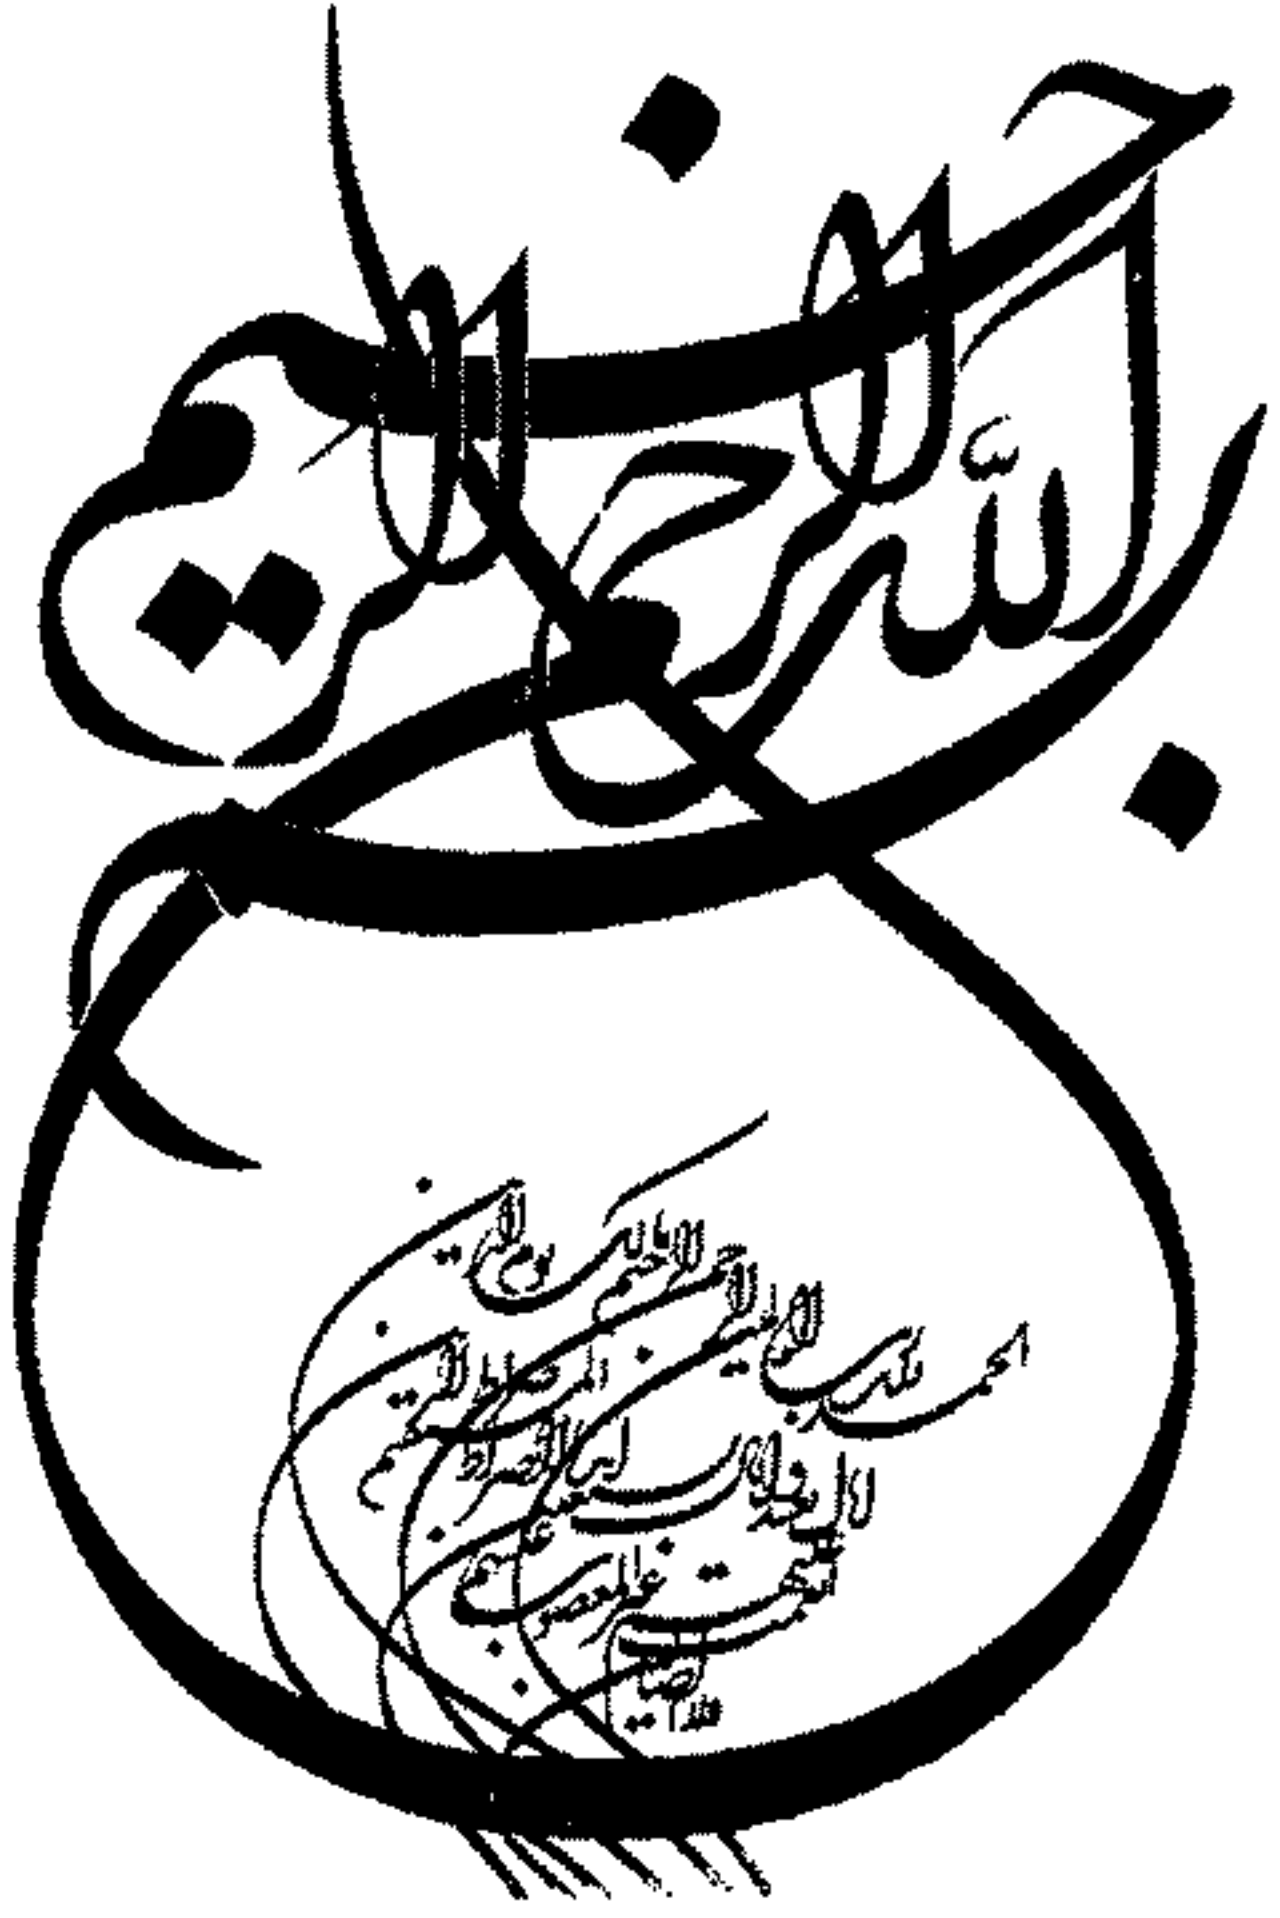 بسم الله الرحمن الرحیم
الحمد لله رب العالمین
الرحمن الرحیم
مالک یوم الدین
ایاک نعبد و ایاک نستعین
اهدنا الصراط المستقیم
صراط الذین انعمت علیهم
غیر المغضوب علیهم
و لا الضالین